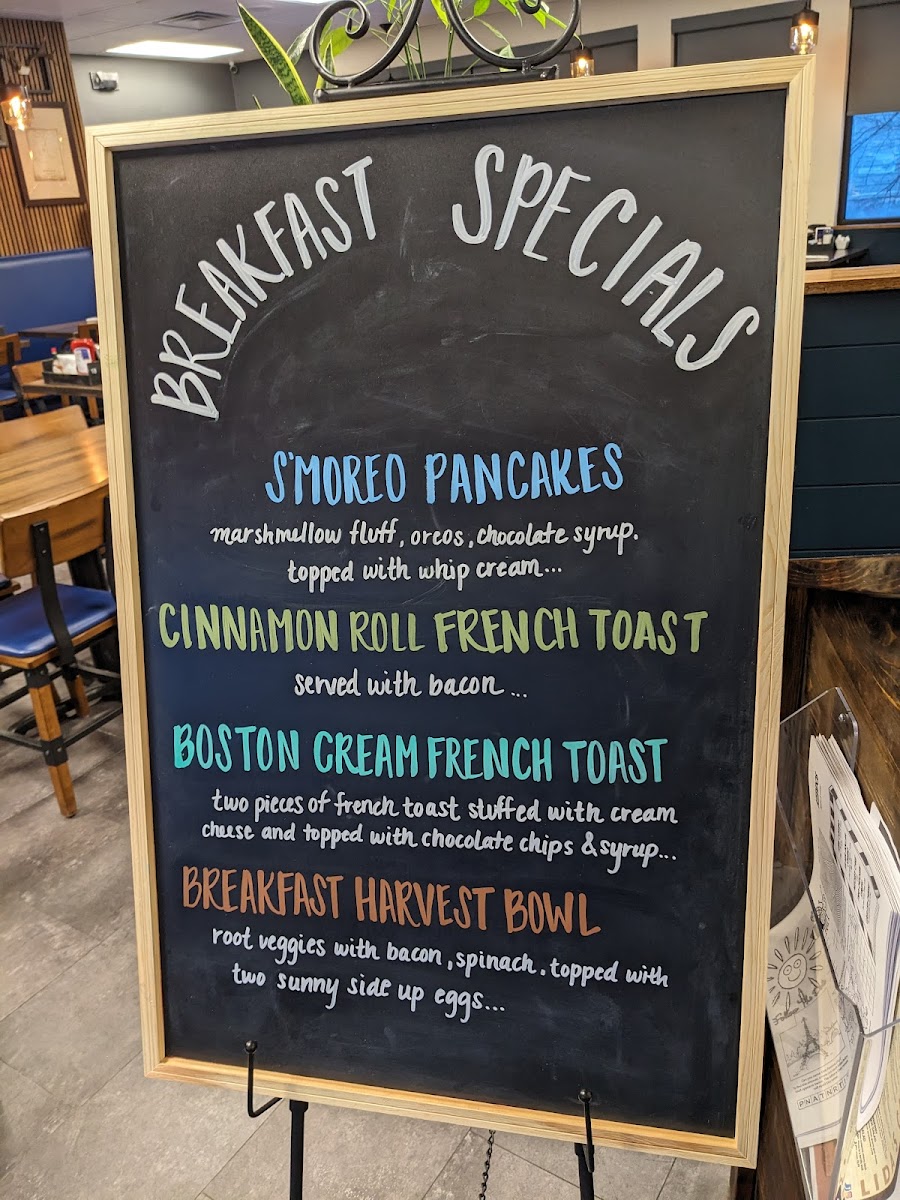 BREAKFAST SPECIALS
S'MOREO PANCAKES
marshmellow fluff, oreos, chocolate syrup.
topped with whip cream...
CINNAMON ROLL FRENCH TOAST
served with bacon...
BOSTON CREAM FRENCH TOAST
two pieces of french toast stuffed with cream
cheese and topped with chocolate chips & syrup...
BREAKFAST HARVEST BOWL
root veggies with bacon, spinach. topped with
two sunny side up eggs...